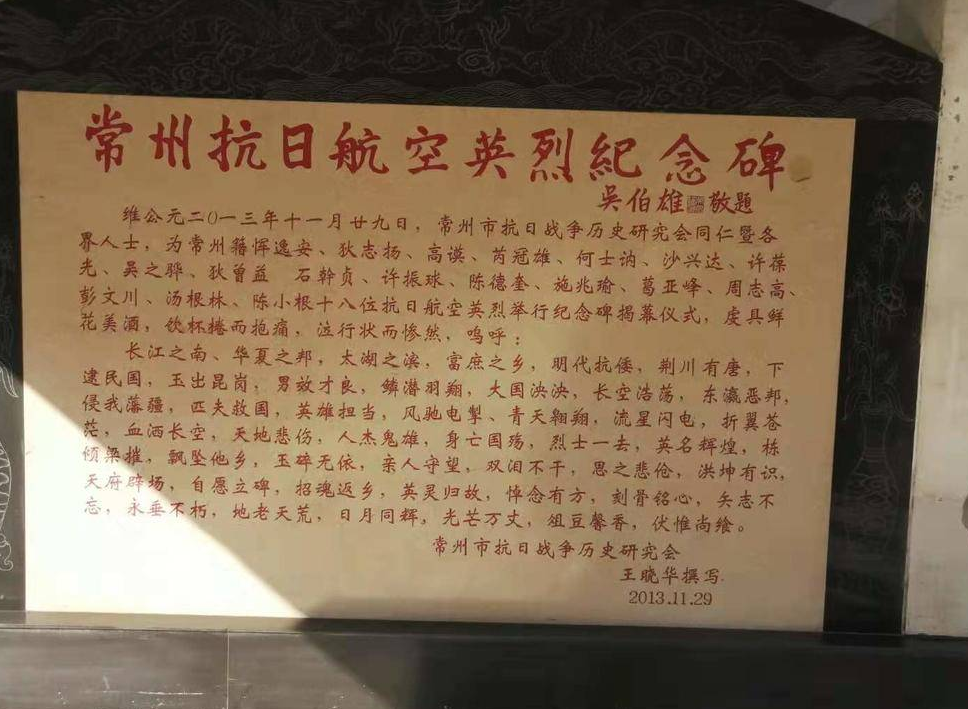 常州抗日航空英烈紀念碑
吴伯雄 敬題
维公元二〇一三年十一月廿九日，常州市抗日战争历史研究会同仁暨各
界人士，为常州籍恽逸安、狄志扬、高谟、芮冠雄、何士讷、沙兴达、许葆
光、吴之骅、狄曾益 石幹贞、许振球、陈德奎、施兆瑜、葛亚峰、周志高、
彭文川、汤根林、陈小根十八位抗日航空英烈举行纪念碑揭幕仪式，虔具鲜
花美酒，饮杯捲而抱痛，泣行状而惨然，呜呼：
长江之南、华夏之邦，太湖之滨，富庶之乡，明代抗倭，荆川有唐，下
逮民国，玉出昆岗，男效才良，鳞潜羽翔，大国泱泱，长空浩荡，东瀛恶邦，
侵我藩疆，匹夫救国，英雄担当，风驰电掣、青天翱翔，流星闪电，折翼苍
茫，血洒长空，天地悲伤，人杰鬼雄，身亡国殇，烈士一去，英名辉煌，栋
倾梁摧，飘坠他乡，玉碎无依，亲人守望，双泪不干，思之悲伧，洪坤有识，
天府辟场，自愿立碑，招魂返乡，英灵归故，悼念有方，刻骨铭心，矢志不
忘，永垂不朽，地老天荒，日月同辉，光芒万丈，俎豆馨香，伏惟尚飨。
常州市抗日战争历史研究会
王晓华撰写
2013.11.29